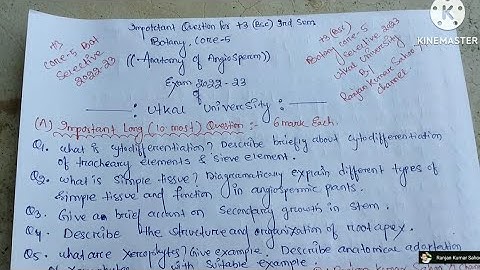 Impotatant Question for +3 (Bsc) 3rd Sem
Botany. Core-5
((Anatomy of Angiosperm))
Exam 2022-23
of
utkal University :
+3
Core-5 Bot
Selective
2022-23
+3 (BSC)
Botany core-5
Selective 2023
utkal University
By
Ranjan Kumar Sahoo
channel
KINEMASTER
(A) Important Long (10 most) Question :- 6 mark Each.
Q1. what is cytodifferentiation? Describe briefly about cytodifferentiation
of tracheary elements & sieve element.
Q2. what is simple tissue? Diagramatically explain different types of
simple tissue and function in angiospermic pants.
Q3. Give an brief account on Secondary growth in stem.
Q4. Describe the structure and organization of root apex.
Q5. what are Xerophytes? Give example. Describe anatomical adaptation
of Xerophytes with Suitable example.
Ranjan Kumar Sahoo